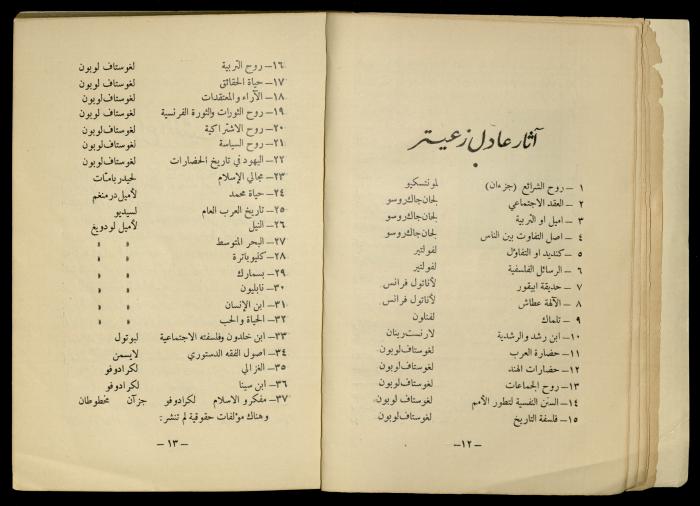 آثار عادل زعيتر
١ – روح الشرائع (جزءان) لمونتسكيو
٢ – العقد الاجتماعي لجان جاك روسو
٣ – اميل او التربية لجان جاك روسو
٤ – اصل التفاوت بين الناس لجان جاك روسو
٥ – كنديد او التفاؤل لفولتير
٦ – الرسائل الفلسفية لفولتير
٧ – حديقة ابيقور لأناتول فرانس
٨ – الآلهة عطاش لأناتول فرانس
٩ – تلماك لفنلون
١٠– ابن رشد والرشدية لارنست رينان
١١– حضارة العرب لغوستاف لوبون
١٢– حضارات الهند لغوستاف لوبون
١٣– روح الجماعات لغوستاف لوبون
١٤– السنن النفسية لتطور الأمم لغوستاف لوبون
١٥– فلسفة التاريخ لغوستاف لوبون
–١٢–
١٦– روح التربية لغوستاف لوبون
١٧– حياة الحقائق لغوستاف لوبون
١٨– الآراء والمعتقدات لغوستاف لوبون
١٩– روح الثورات والثورة الفرنسية لغوستاف لوبون
٢٠– روح الاشتراكية لغوستاف لوبون
٢١– روح السياسة لغوستاف لوبون
٢٢– اليهود في تاريخ الحضارات لغوستاف لوبون
٢٣– مجالي الإسلام لحيدر بامات
٢٤– حياة محمد لأميل درمنغم
٢٥– تاريخ العرب العام لسيديو
٢٦– النيل لأميل لودويغ
٢٧– البحر المتوسط » »
٢٨– كليوباترة » »
٢٩– بسمارك » »
٣٠– نابليون » »
٣١– ابن الإنسان » »
٣٢– الحياة والحب » »
٣٣– ابن خلدون وفلسفته الاجتماعية لبوتول
٣٤– اصول الفقه الدستوري لايسمن
٣٥– الغزالي لكرادوفو
٣٦– ابن سينا لكرادوفو
٣٧– مفكرو الاسلام لكرادوفو جزآن مخطوطان
وهناك مؤلفات حقوقية لم تنشر:
– ١٣ –